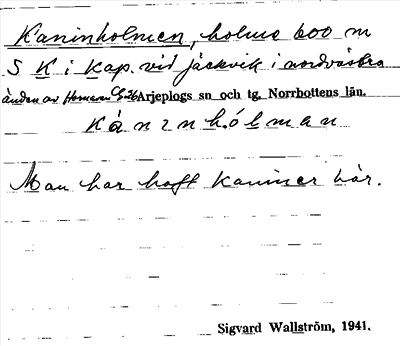 Kaninholmen, holme 600 m
S K i kap. vid Jäckvik i nordvästra
änden av Hornavan Arjeplogs sn och tg, Norrbottens län.
kánınhólman
Man har haft kaniner här.
Sigvard Wallström, 1941.